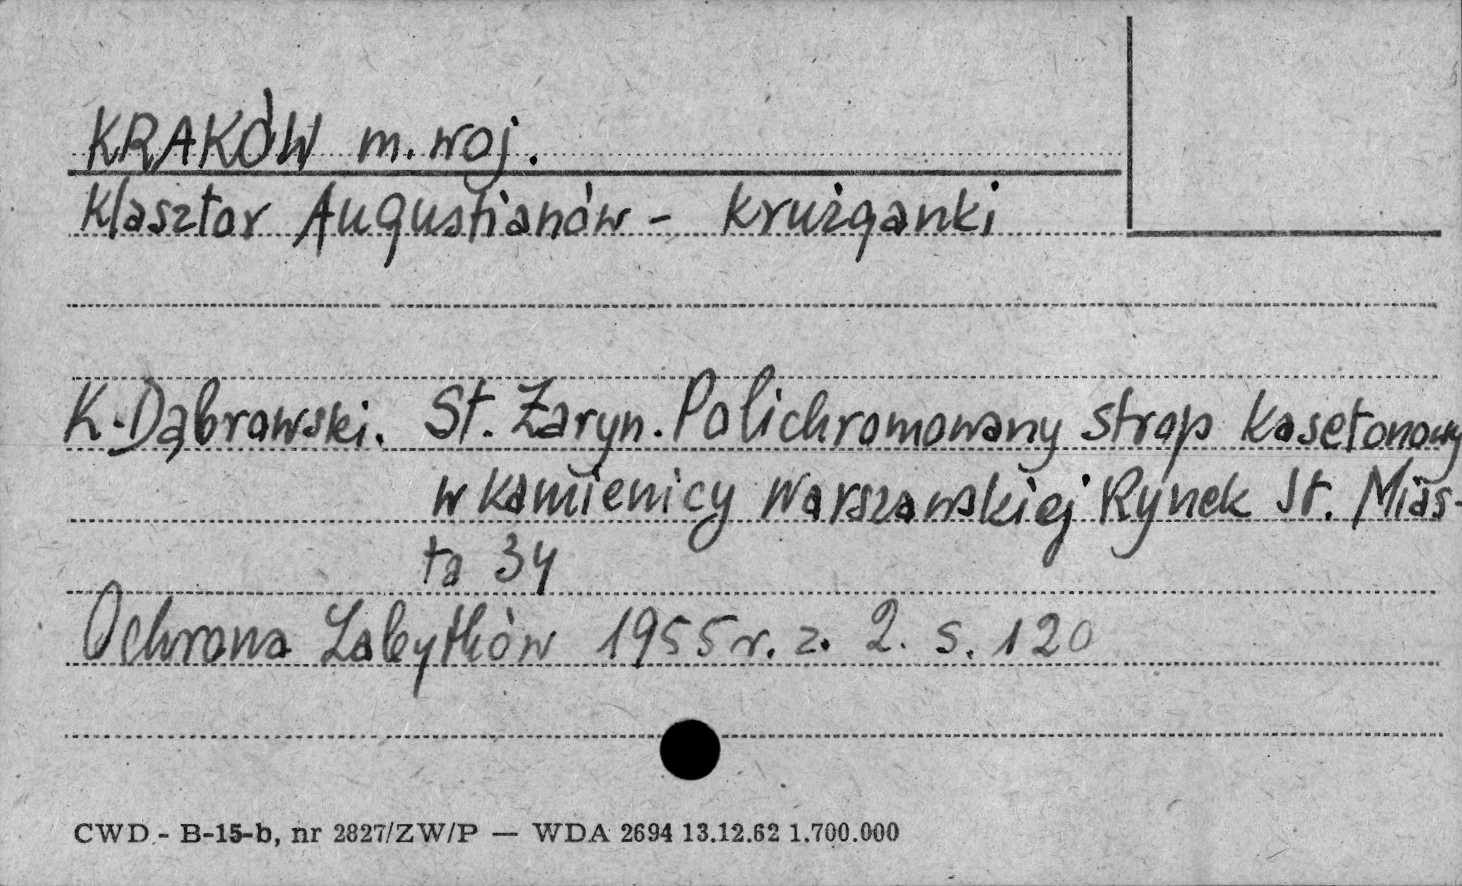 KRAKÓW m. woj.
Klasztor Augustianów - krużganki
K. Dąbrowski. St. Żaryn. Polichromowany strop kasetonowy
w kamienicy Warszawskiej Rynek St. Mias-
ta 34
Ochrona Zabytków 1955 r. z. 2. s. 120
CWD - B-15-b, nr 2827/ZW/P — WDA 2694 13.12.62 1.700.000